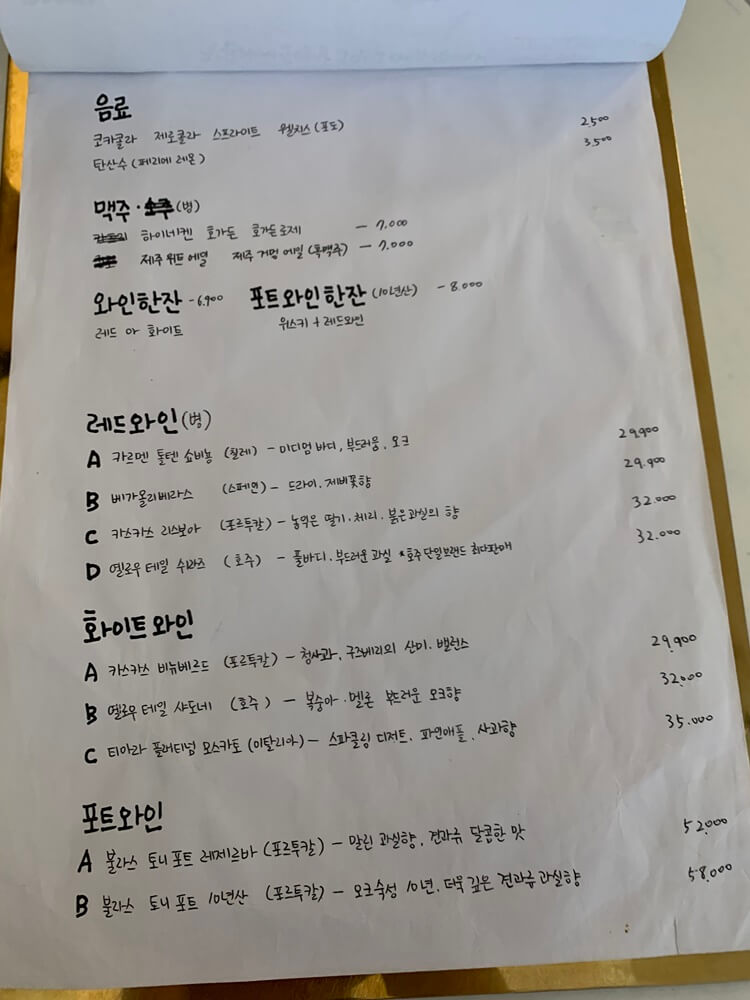 음료
코카콜라 제로콜라 스프라이트 웰치스(포도) 2,500
탄산수(페리에 레몬) 3,500
맥주·소주(병)
하이네켄 호가든 호가든로제 - 7,000
제주위트에일 제주 거멍에일(흑맥주) - 7,000
와인한잔 - 6,900 포트와인한잔(10년산) - 8.000
레드 or 화이트 위스키+레드와인
레드와인(병)
A 카르멘 톨텐 쇼비뇽 (칠레) - 미디엄바디, 부드러움, 오크 29,900
B 베가올리베라스 (스페인) - 드라이. 제비꽃향 29.900
C 카스카스 리스보아 (포르투칼) - 농익은 딸기. 체리. 붉은과실의 향 32.000
D 옐로우테일 쉬라즈 (호주) - 풀바디. 부드러운 과실 *호주 단일브랜드 최다판매 32.000
화이트와인
A 카스카스 비뉴베르드 (포르투칼) - 청사과, 구즈베리의 산미. 밸런스 29,900
B 옐로우테일 샤도네 (호주) - 복숭아. 멜론 부드러운 오크향 32.000
C 티아라 플래티넘 모스카토 (이탈리아) - 스파클링 디저트. 파인애플. 사과향 35.000
포트와인
A 불라스 토니포트 레제르바 (포르투칼) - 말린 과실향, 견과류 달콤한 맛 52,000
B 불라스 토니포트 10년산 (포르투칼) - 오크숙성 10년. 더욱 깊은 견과류과실향 58,000